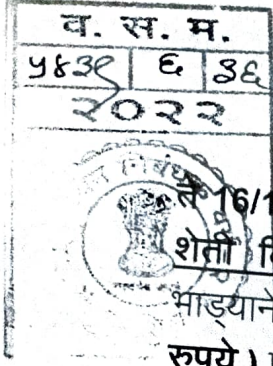 व. स. म.
५४३९ ६ ३६
२०२२
निबंधक
ते 16/1
शेती
भाड्याने
रुपये )